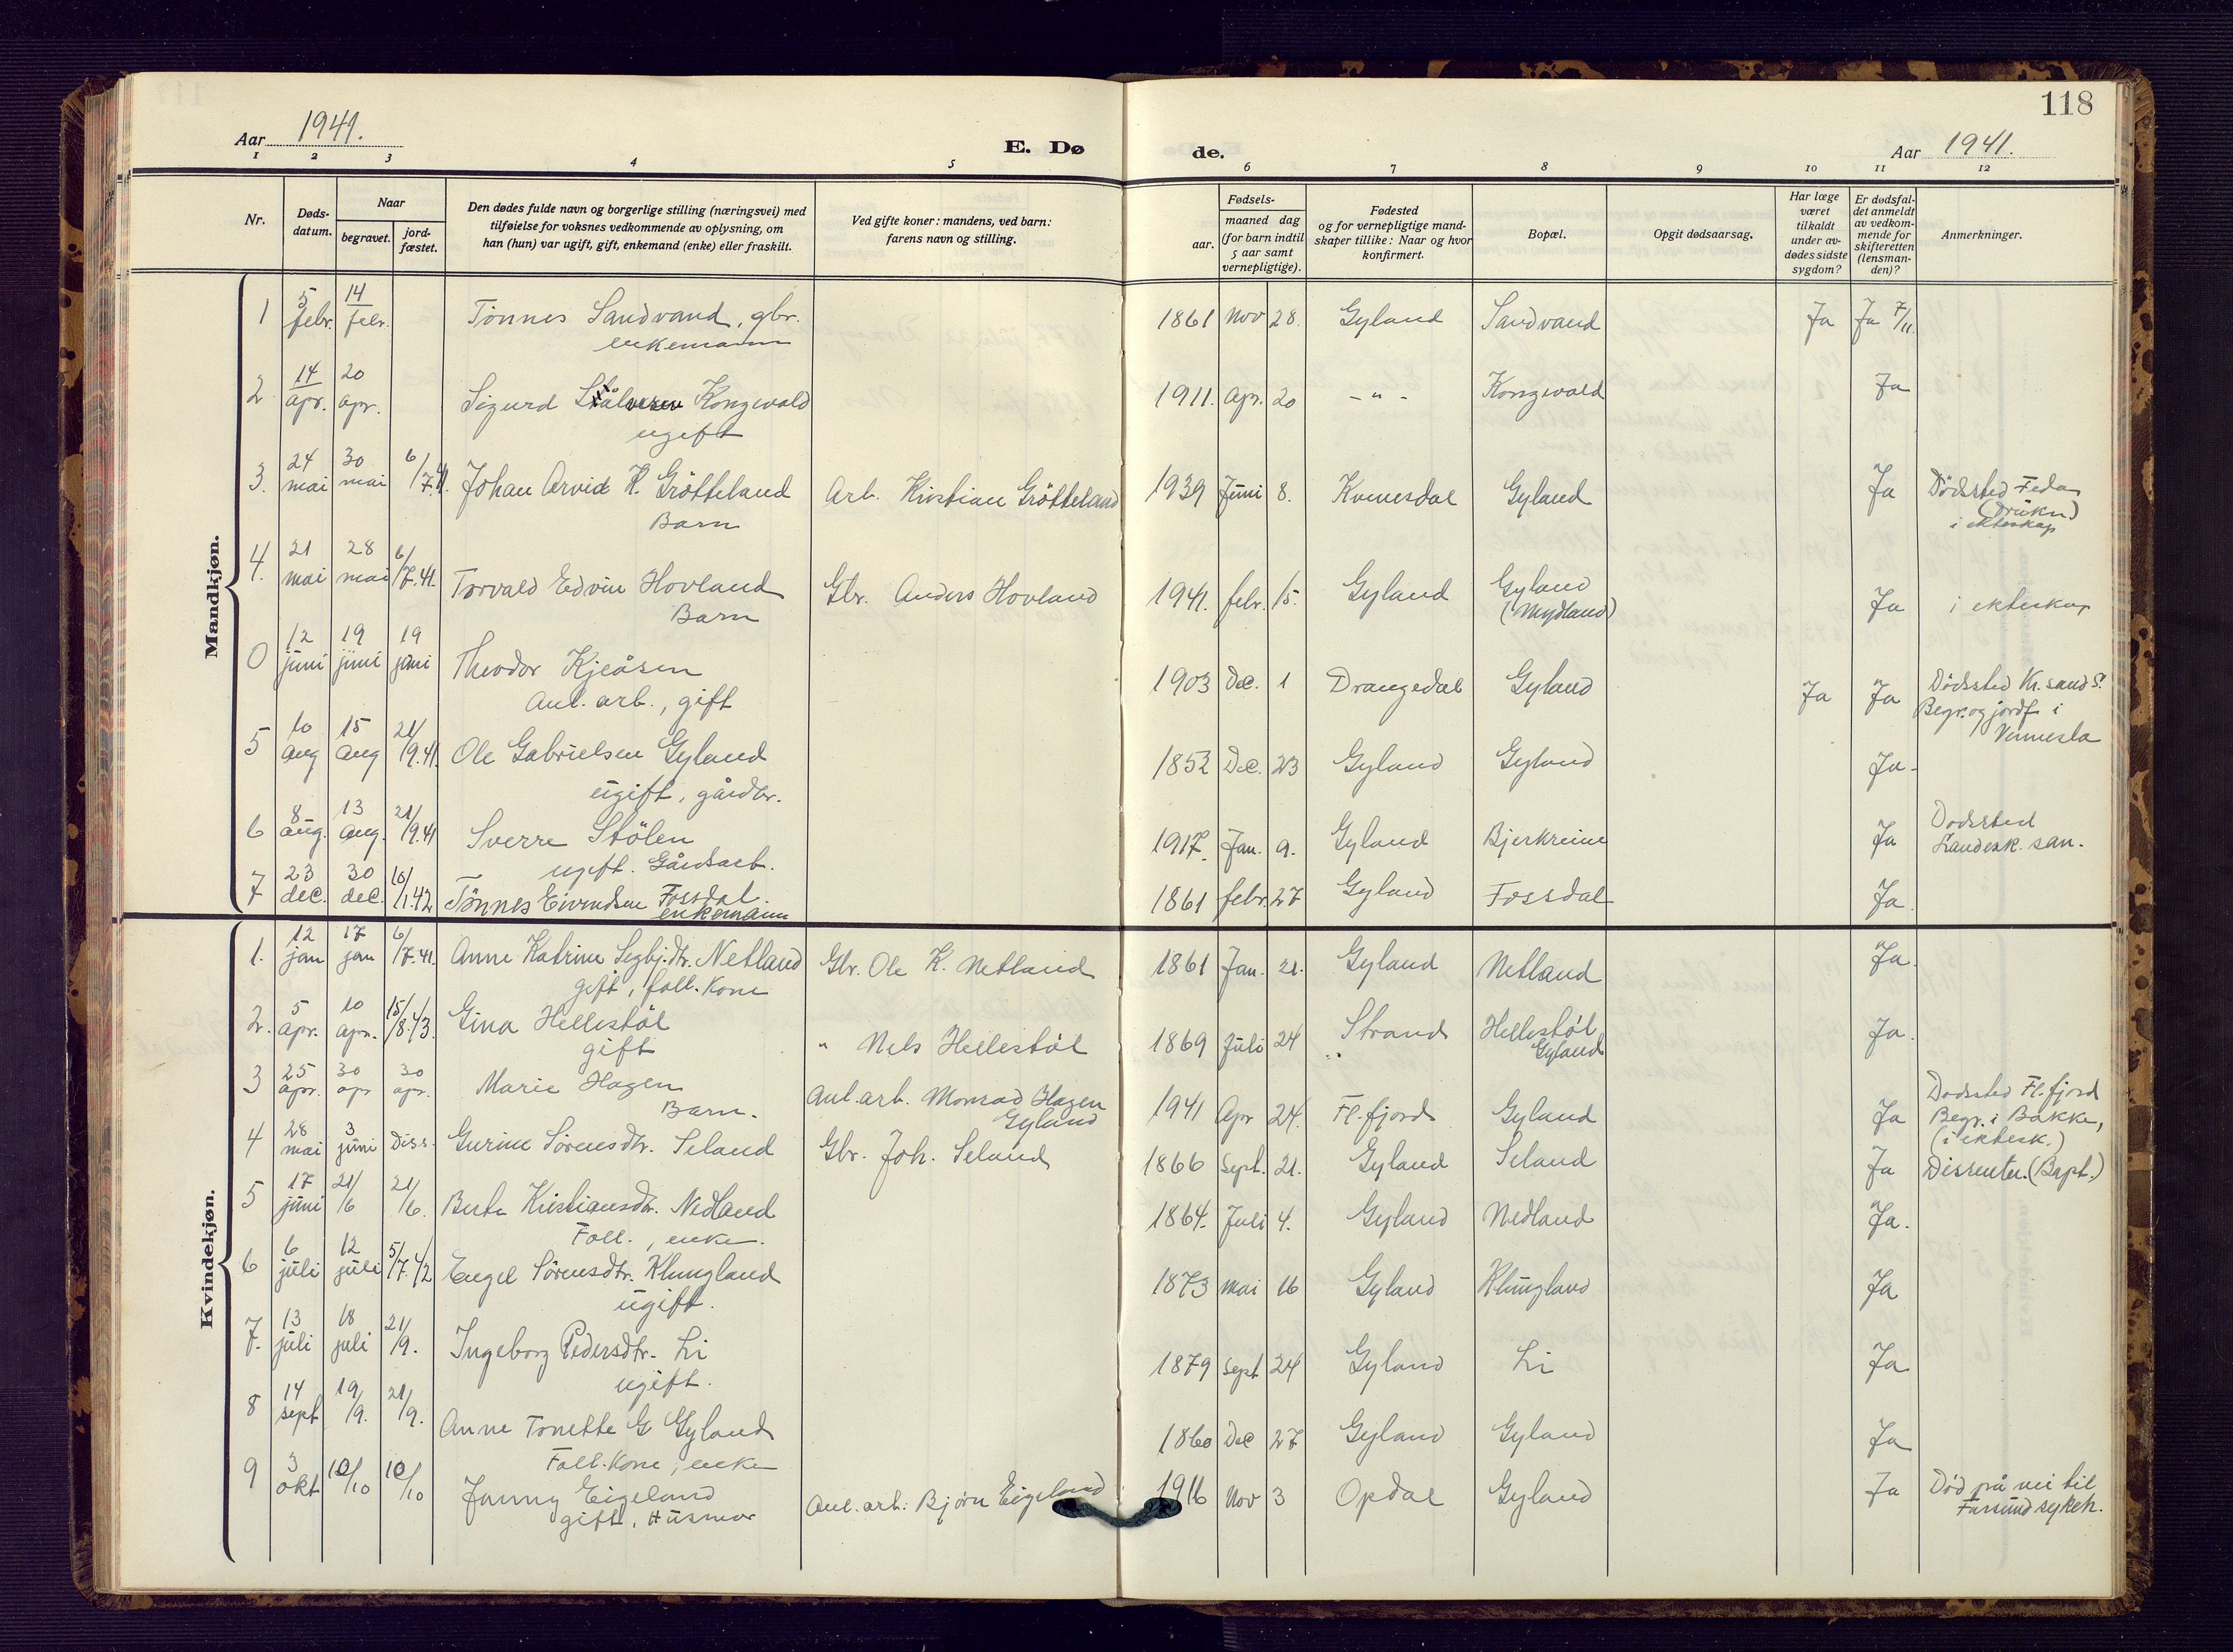 118
Aar 1941.
E. Dø
de.
Aar 1941.
1 2 3 4 5 6 7 8 9 10 11 12
Nr.
Døds-
datum.
Naar
begravet.
jord-
fæstet.
Den dødes fulde navn og borgerlige stilling (næringsvei) med
tilføielse for voksnes vedkommende av oplysning, om
han (hun) var ugift, gift, enkemand (enke) eller fraskilt.
Ved gifte koner: mandens, ved barn:
farens navn og stilling.
Fødsels-
aar.
maaned dag
(for barn indtil
5 aar samt
vernepligtige).
Fødested
og for vernepligtige mand-
skaper tillike: Naar og hvor
konfirmert.
Bopæl.
Opgit dødsaarsag.
Har læge
været
tilkaldt
under av-
dødes sidste
sygdom?
Er dødsfal-
det anmeldt
av vedkom-
mende for
skifteretten
(lensman-
den)?
Anmerkninger.
Mandkjøn.
1 5 febr. 14 febr. Tönnes Sandvand, gbr. 1861 Nov 28. Gyland Sandvand Ja Ja 7/11.
enkemann
2 14 apr. 20 apr. Sigurd Kongevold 1911. Apr. 20 - " - Kongevold Ja
ugift
3. 24 mai 30 mai 6/7.41. Johan Arvid K. Grötteland Arb. Kristian Grötteland 1939 Juni 8. Kvinesdal Gyland Ja Dödsted Feda
Barn (Drukn)
i ekteskap
4. 21 mai 28 mai 6/7.41. Torvald Edvin Hovland Gbr. Anders Hovland 1941. febr. 15. Gyland Gyland Ja i ekteskap
Barn (Mydland)
0 12 juni 19 juni 19 juni Theodor Kjeåsen 1903 Dec. 1 Drangedal Gyland Ja Ja Dödsted Kr.sand S.
Anl. arb., gift Begr. og jordf. i
Vennesla
5 10 aug 15 aug 21/9.41. Ole Gabrielsen Gyland 1852 Dec. 23 Gyland Gyland Ja.
ugift, gårdbr.
6 8 aug. 13 aug. 21/9.41 Sverre Stölen 1917. Jan. 9. Gyland Bjerkreim Ja Dodsted
ugift. Gårdsarb. san.
7 23 dec. 30 dec. 10/1.42 Tönnes Eivindsen Fossdal. 1861 febr. 27 Gyland Fossdal Ja.
enkemann
Kvindekjøn.
1. 12 jan 17 jan 6/7.41. Anne Katrine Segbj.dtr. Netland Gbr. Ole K. Netland 1861 Jan. 21. Gyland Netland Ja.
gift, foll. kone
2. 5 apr. 10 apr. 15/8.43 Gina Hellestöl " Nels Hellestöl 1869 Juli 24 Strand Hellestöl Ja.
gift Gyland
3 25 apr. 30 apr 30 apr. Marie Hagen Anl. arb. Monrad Hagen 1941 Apr 24. Fl.fjord Gyland Ja Dodsted Fl.fjord
Barn. Gyland Begr. i Bakke,
(i ektesk.)
4 28 mai 3 juni Diss. Gurine Sörensdtr. Seland Gbr. Joh. Seland 1866 Sept. 21. Gyland Seland Ja Dissenter. (Bapt.)
5 17 juni 21/6 21/6. Berte Kristiansdtr. Nedland 1864. Juli 4. Gyland Nedland Ja.
Foll., enke.
6 6 juli 12 juli 5/7.42 Engel Sörensdtr. Klungland 1873 Mai 16 Gyland Klungland Ja
ugift.
7. 13 juli 18 juli 21/9. Ingeborg Pedersdtr. Li 1879 Sept 24 Gyland Li Ja
ugift.
8 14 sept 19/9. 21/9. Anne Tonette G Gyland 1860 Dec 27 Gyland Gyland Ja
Foll. kone, enke
9 3 okt 10/10 10/10 Janny Eigeland Anl. arb: Bjørn Eigeland 1916 Nov 3 Opdal Gyland Ja Död på vei til
gift, Husmor Farsund sykeh.